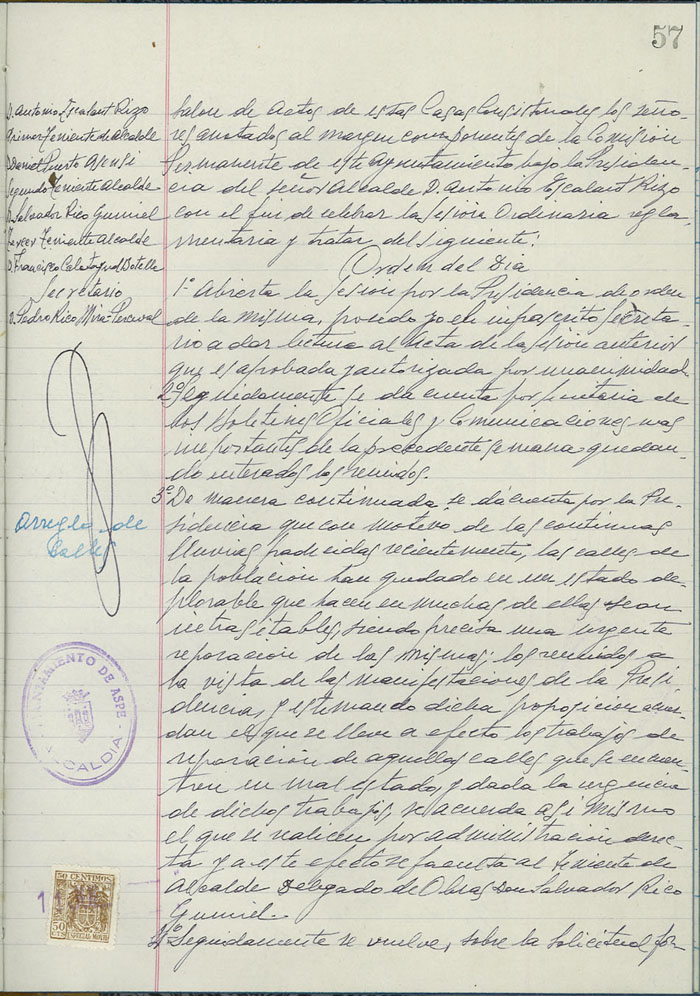 57
D. Antonio Escalant Rizo
Primer Teniente de Alcalde
D. Daniel Puerto Asensi
Segundo Teniente Alcalde
D. Salvador Rico Gumiel
Tercer Teniente Alcalde
D. Francisco Calatayud Botella
Secretario
D. Pedro Rico Mira-Perceval
Arreglo de
Calles
AYUNTAMIENTO DE ASPE
ALCALDIA
50 CENTIMOS
50 CTS
ESPECIAL MOVIL
Salon de Actos de estas Casas Consistoriales los seño-
res anotados al margen componentes de la Comisión
Permanente de este Ayuntamiento bajo la Presiden-
cia del señor Alcalde D. Antonio Escalant Rizo
con el fin de celebrar la sesión Ordinaria regla-
mentaria y tratar del siguiente:
Orden del Dia
1º Abierta la sesión por la Presidencia de orden
de la misma, procedo yo el infrascrito Secreta-
rio a dar lectura al acta de la sesión anterior
que es aprobada y autorizada por unanimidad.
2º Seguidamente se da cuenta por Secretaria de
los Boletines Oficiales y Comunicaciones mas
importantes de la precedente semana quedan-
do enterados los reunidos.
3º De manera continuada se da cuenta por la Pre-
sidencia que con motivo de las continuas
lluvias padecidas recientemente, las calles de
la población han quedado en un estado de-
plorable que hacen en muchas de ellas sean
intransitables, siendo precisa una urgente
reparación de las mismas; los reunidos a
la vista de las manifestaciones de la Presi
dencia, y estimando dicha proposición acuer-
dan el que se lleven a efecto los trabajos de
reparación de aquellas calles que se encuen-
tren en mal estado, y dada la urgencia
de dichos trabajos, se acuerda asi mismo
el que se realicen por administración direc-
ta y a este efecto se faculta al Teniente de
Alcalde Delegado de Obras Don Salvador Rico
Gumiel.
4º Seguidamente se vuelve, sobre la solicitud for-